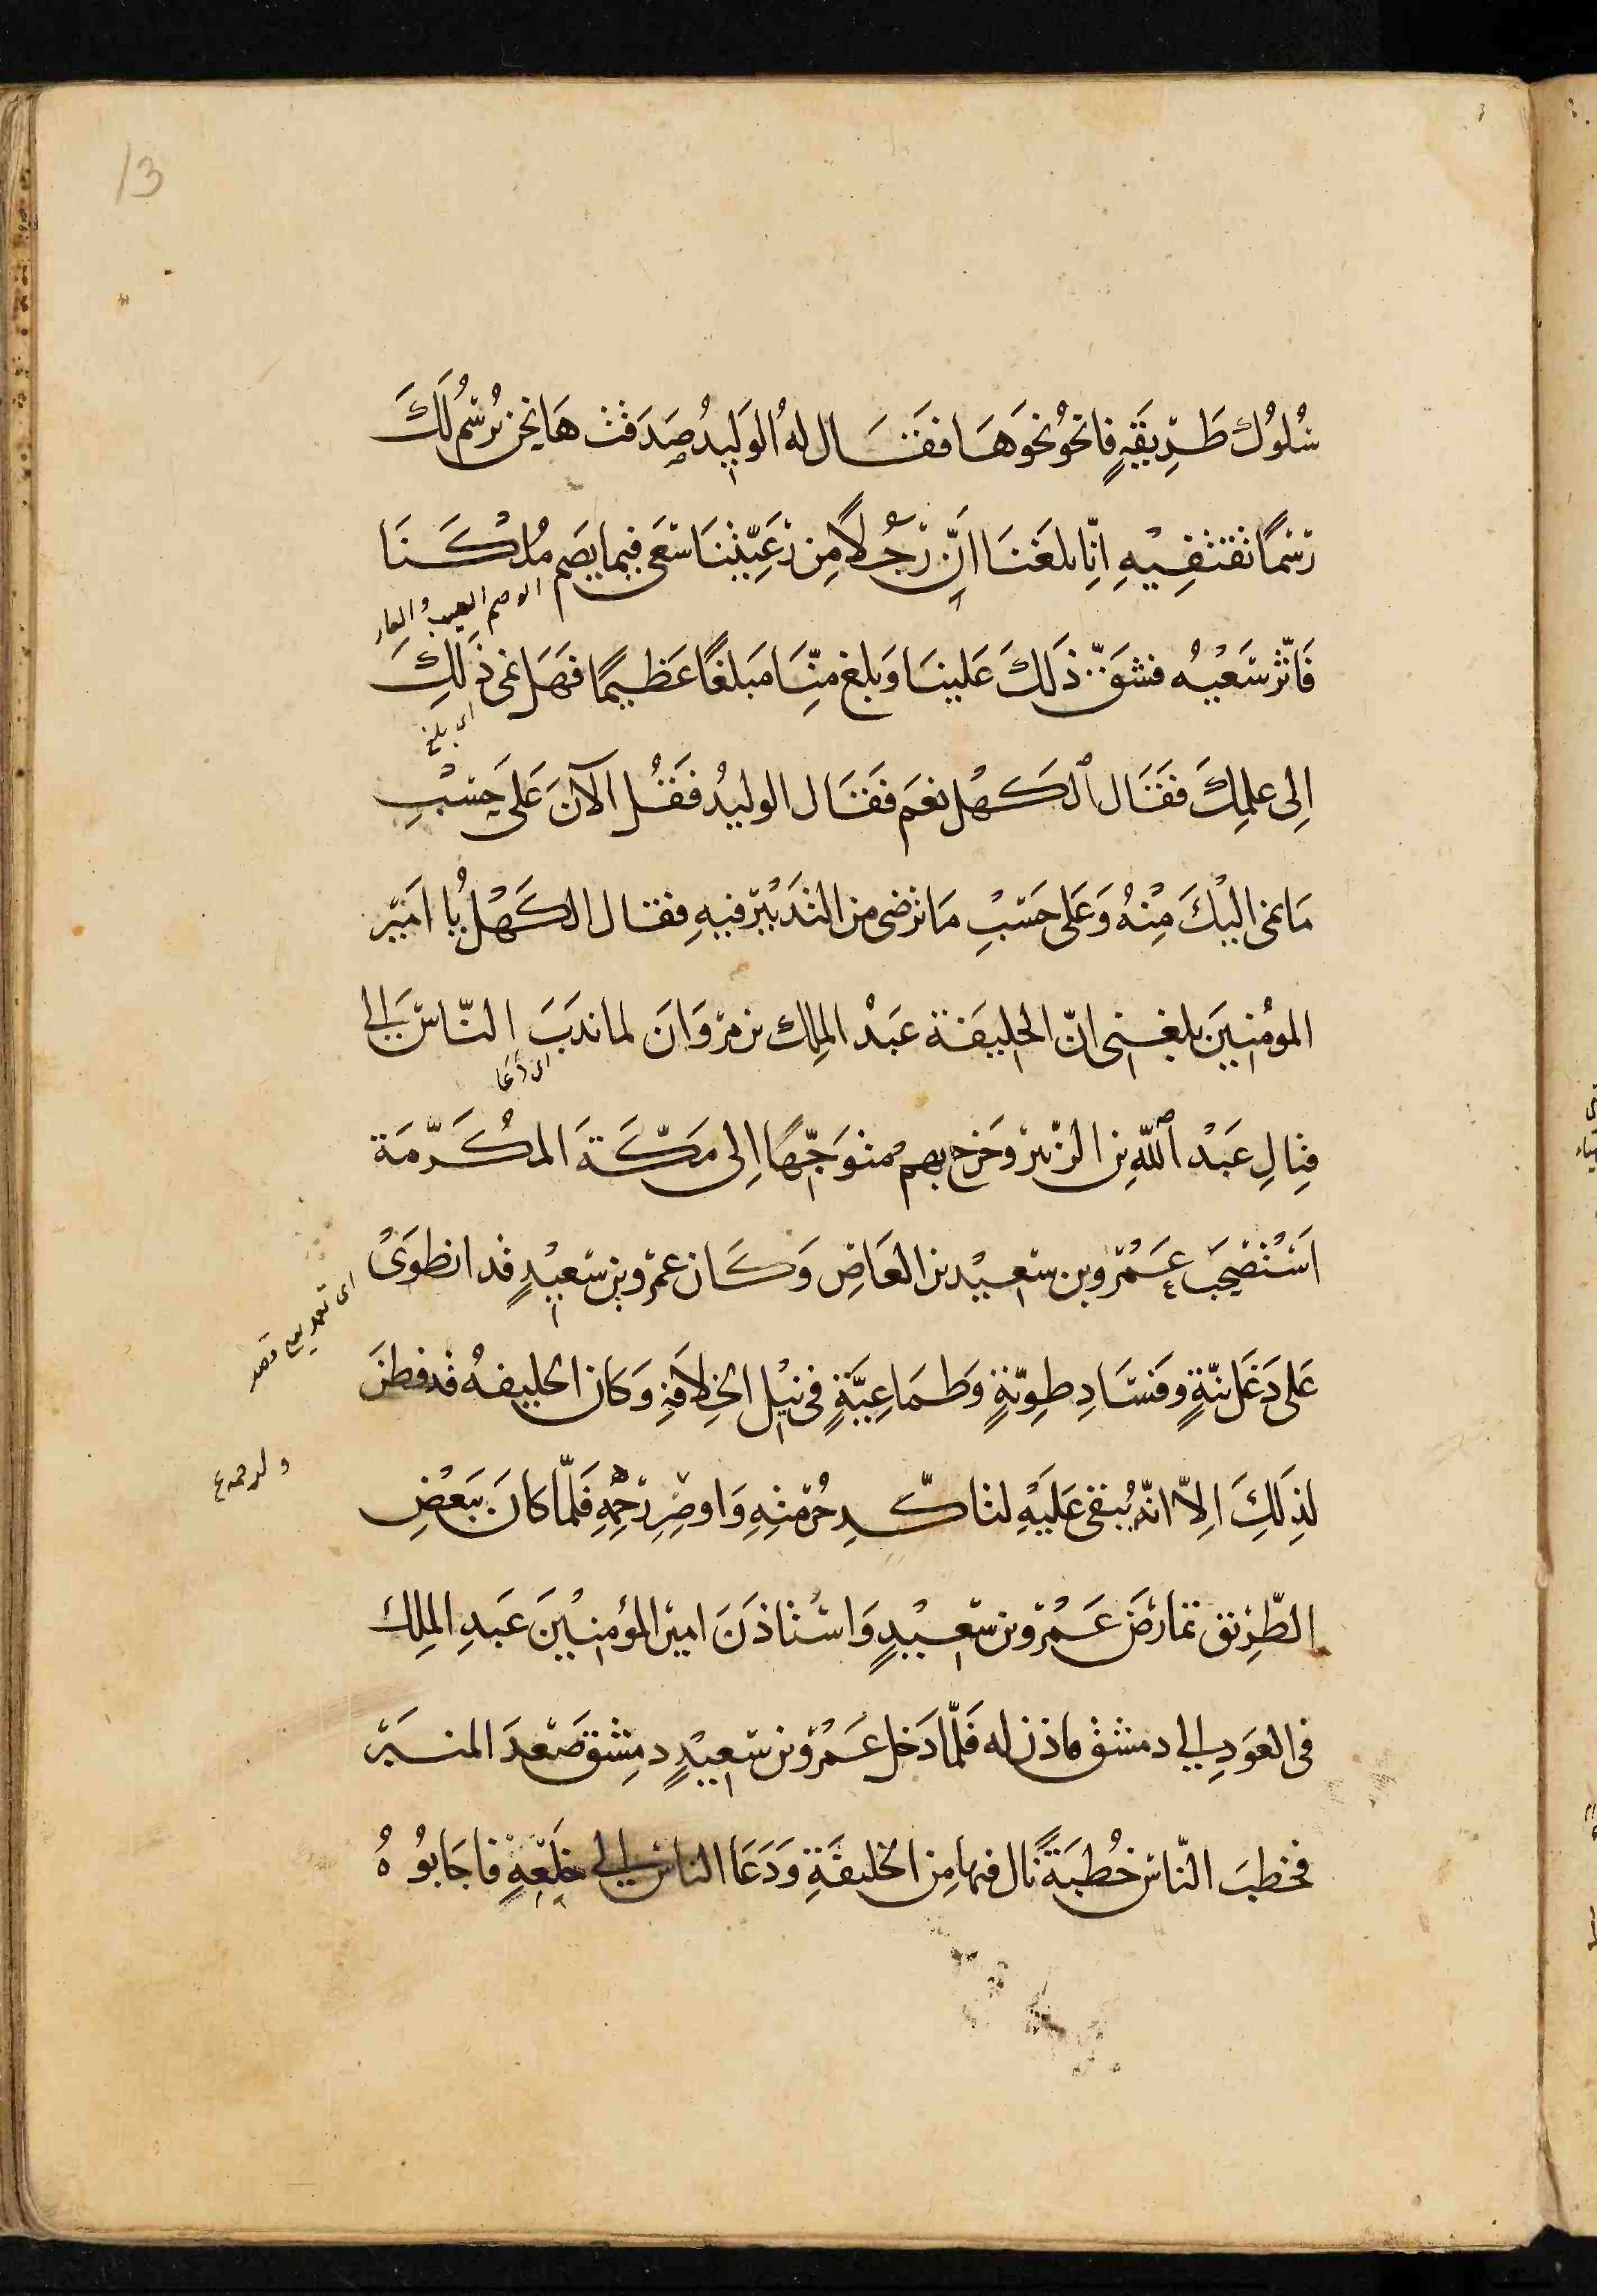 13
سُلُوكُ طَرِيقَةٍ فَانحُ نحْوَهَا فَقَالَ لَهُ الوَلِيدُ صَدَقتَ هَا نحن نُرسُمُ لَكَ
رَسْمًا تَقْتَفِيْهِ اِنّا بلَغَنَا اَنَّ رَجُلًا مِن رَعِيَّتِنَا سَعَى فِيما يَصِم مُلْكَنَا
الوصم العيب والعار
فَاَثّر سَعْيُه فشَقّ ذَلكَ عَلينَا وَبلغ مِنّا مَبلَغًا عَظِيمًا فَهَل نمَى ذَلِكَ
اى بلغ
اِلى عِلمِكَ فَقَال الكَهْلُ نعَم فَقَال الوليدُ فَقُل الآنَ عَلَى حَسْبِ
مَا نمَى اليْكَ مِنْهُ وَعَلى حَسْبِ مَا ترضى من التَدْبيْر فيهِ فقال الكَهْلُ يا اَمير
المؤمنِينَ بلغنى انّ الخليفَة عَبدْ الملِك بن مرْوَانَ لما ندَبَ النّاسَ الى
اى دَعَا
قِتالِ عَبدْ اللهِ بن الزّبير وَخرج بهم متوَجّهًا اِلى مَكّة المكَرّمَة
اَسْتَصْحَبَ عَمْرو بن سَعِيْد بن العَاصِ وَكَان عمْرو بن سَعِيْدٍ قد انطوَى
عَلى دَغَل نيّةٍ وفَسَادِ طوِيّةٍ وَطمَاعِيَّةٍ فى نيْل الخِلافةِ وَكان الخليفهُ قد فطنَ
لِذلِكَ اِلّا انّه يُبقى عَلَيْهِ لتاكّدِ حُرْمتِهِ وَاوَاصِرِ رَحِمِهِ فَلمّا كانَ ببَعْضِ
الطّرِيق تمارَضَ عَمْرو بن سَعِيْدٍ وَاسْتاذَنَ اميْر المؤمنِيْنَ عَبدِ الملِك
فى العَودِ الى دمشق فاذن له فَلمّا دَخل عَمْرو بن سَعِيْدٍ دمِشق صَعدَ المنبَر
فخطبَ النّاس خُطبَةً نال فيها مِن الخليفَةِ وَدَعَا الناسَ الى خَلْعِهِ فاجَابوُهُ